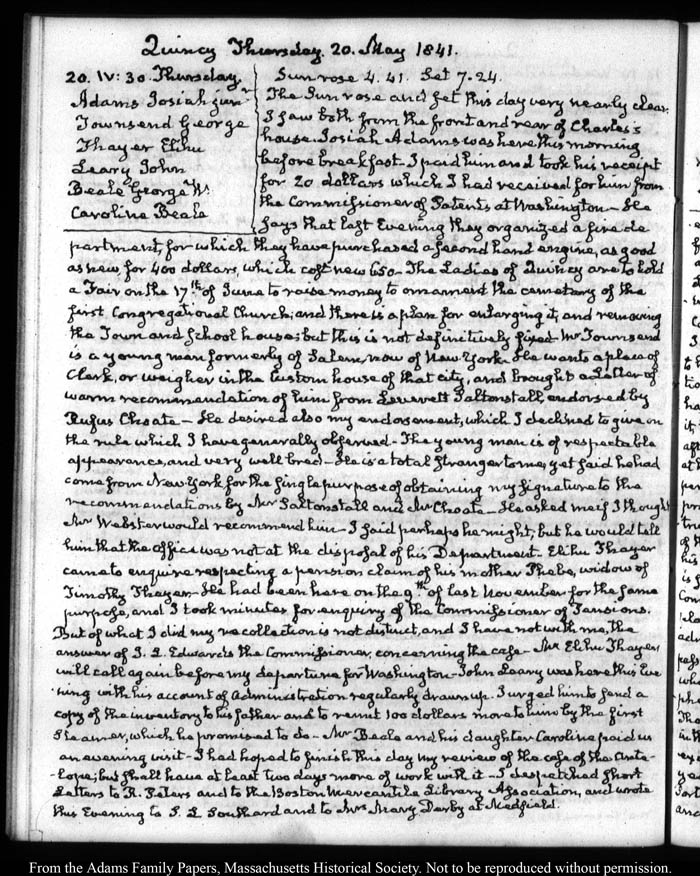 Quincy Thursday. 20. May 1841.
20. IV: 30. Thursday
Adams Josiah junr
Townsend George
Thayer Elihu
Leary John
Beale George W.
Caroline Beale
Sun rose 4. 41. Set 7-24.
The Sun rose and set this day very nearly clear.
I saw both from the front and rear of Charles's
house. Josiah Adams was here this morning
before breakfast. I paid him and took his receipt
for 20 dollars which I had received for him from
the Commissioner of Patents at Washington— He
says that last Evening they organized a fire de
partment, for which they have purchased a second hand engine, as good
as new, for 400 dollars, which cost new 650— The Ladies of Quincy are to hold
a Fair on the 17th of June to raise money to ornament the cemetary of the
first Congregational Church; and there is a plan for enlarging it, and removing
the Town and School house; but this is not definitively fixed— Mr Townsend
is a young man formerly of Salem, now of New York. He wants a place of
Clerk, or weigher in the Custom house of that city, and brought a Letter of
warm recommendation of him from Leverett Saltonstall, endorsed by
Rufus Choate— He desired also my endorsement, which I declined to give on
the rule which I have generally observed— The young man is of respectable
appearance, and very well bred— He is a total stranger to me, yet said he had
come from New York for the single purpose of obtaining my signature to the
recommendations by Mr Saltonstall and Mr Choate— He asked me if I thought
Mr Webster would recommend him— I said perhaps he might, but he would tell
him that the office was not at the disposal of his Department— Elihu Thayer
came to enquire respecting a pension claim of his mother Phebe, widow of
Timothy Thayer— He had been here on the 9th of last November for the same
purpose, and I took minutes for enquiry of the Commissioner of Pensions.
But of what I did my recollection is not distinct, and I have not with me, the
answer of J. L. Edwards the Commissioner, concerning the case— Mr Elihu Thayer
will call again before my departure for Washington— John Leary was here this Eve
ning with his account of Administration regularly drawn up. I urged him to send a
copy of the inventory to his father and to remit 100 dollars more to him by the first
Steamer, which he promised to do— Mr Beale and his daughter Caroline paid us
an evening visit— I had hoped to finish this day my review of the case of the Ante-
-lope; but shall have at least two days more of work with it— I despatched short
Letters to R. Peters and to the Boston Mercantile Library Association, and wrote
this Evening to S. L. Southard and to Mrs Mary Derby at Medfield.
From the Adams Family Papers, Massachusetts Historical Society. Not to be reproduced without permission.